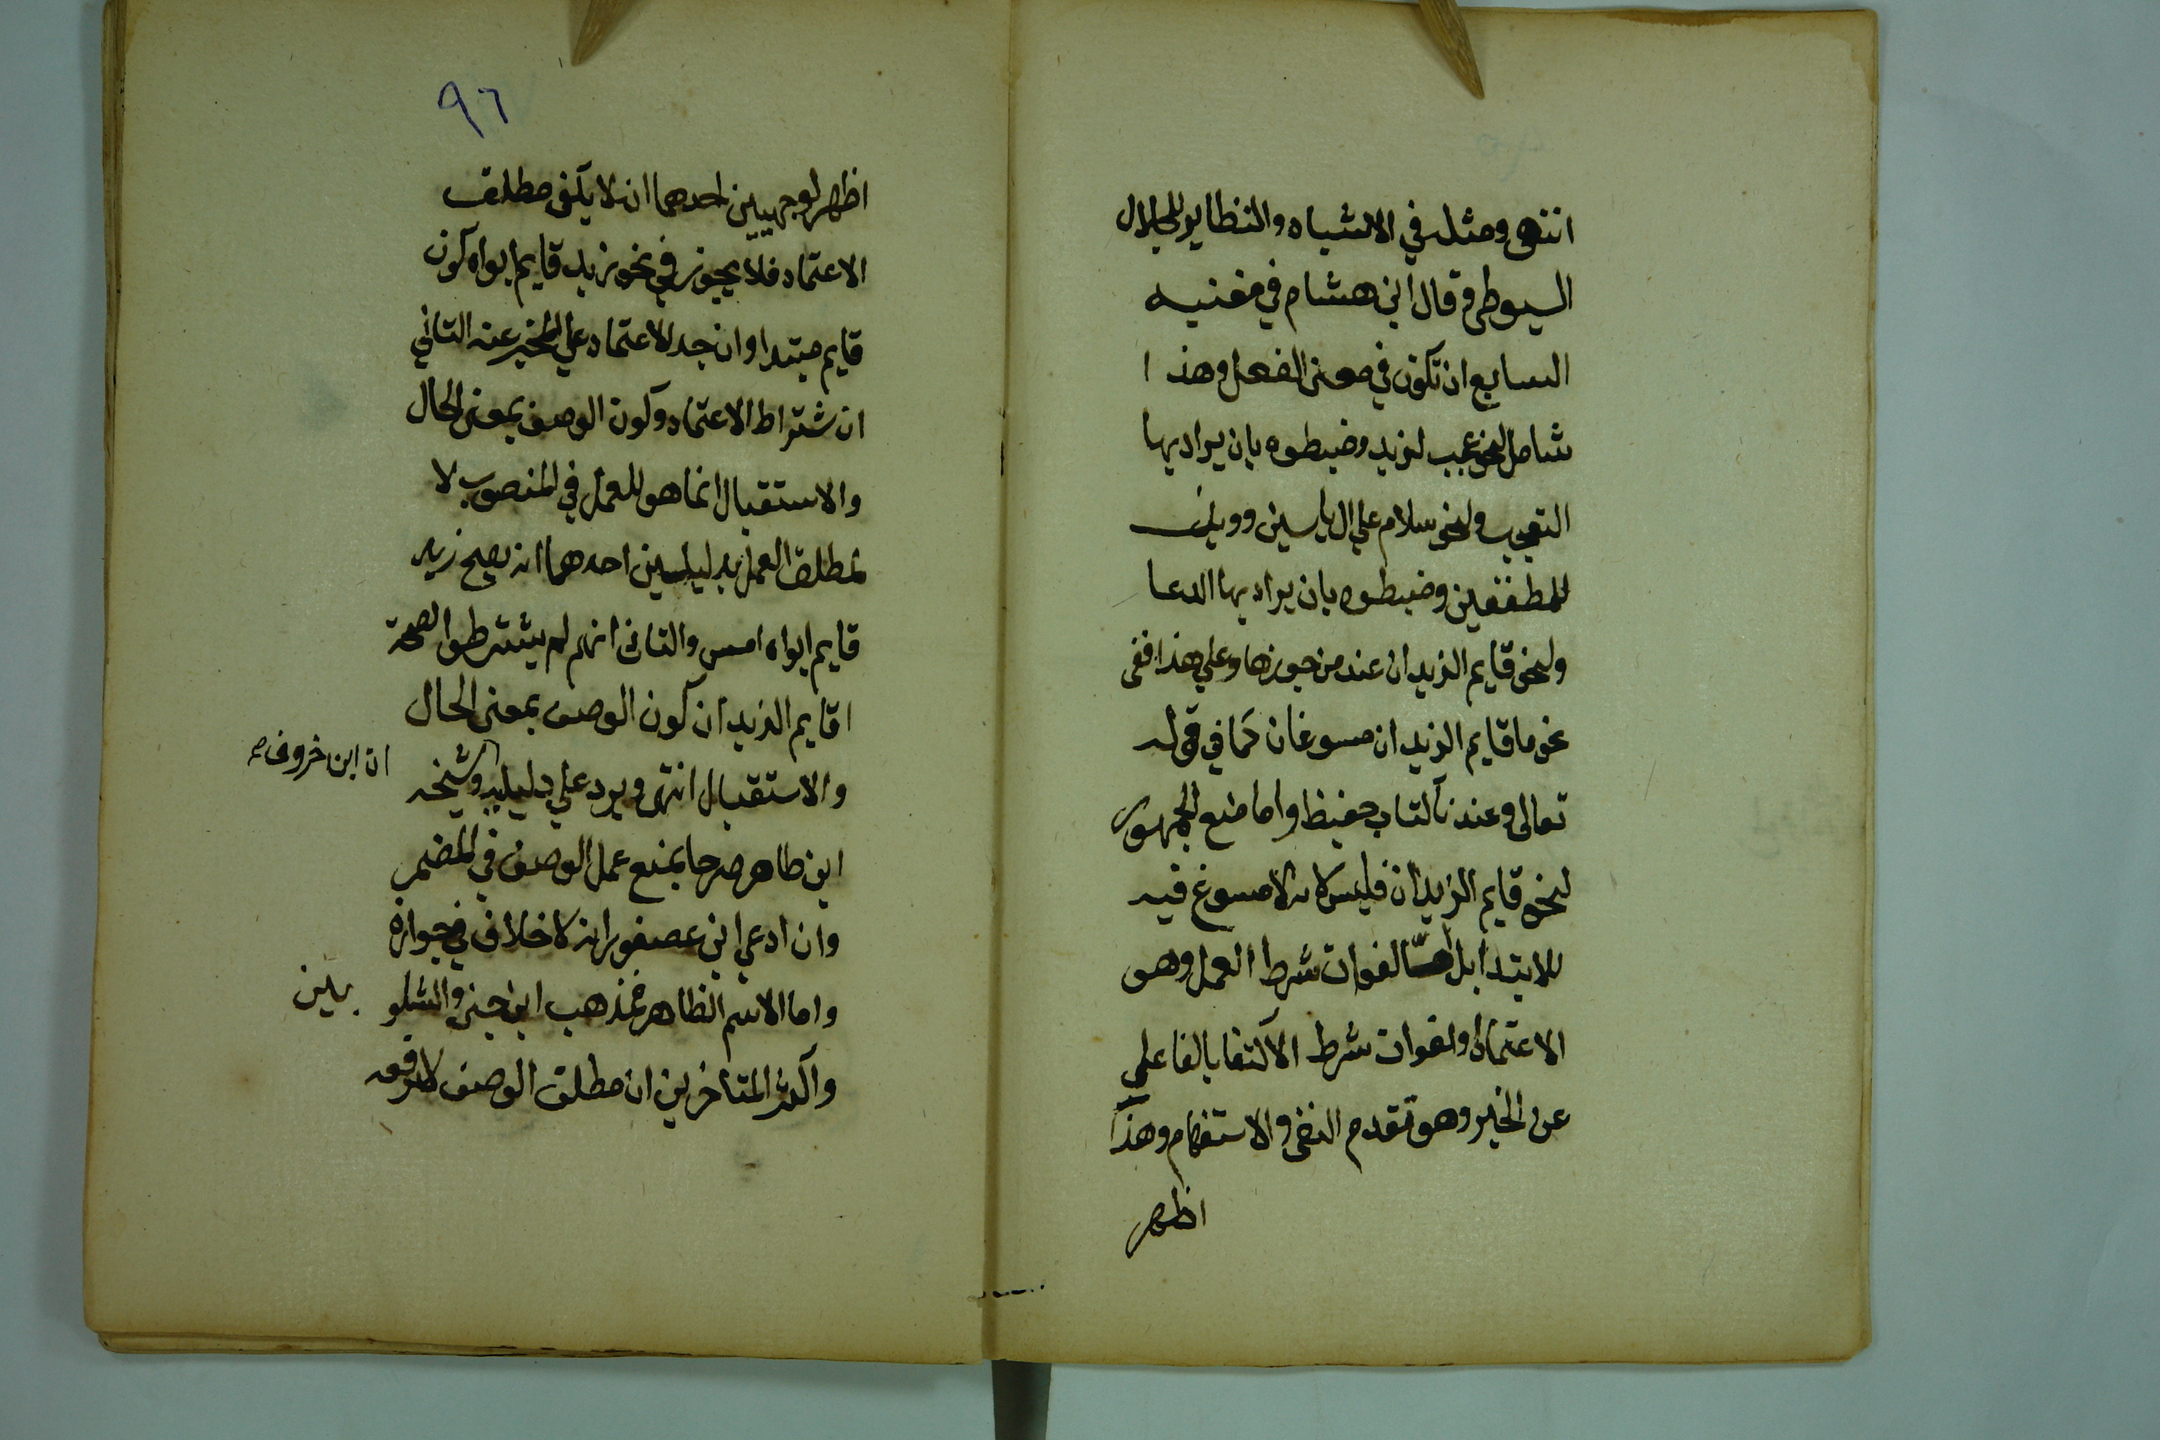 انتهى ومثله في الاشباه والنظاير للجلال
السيوطي وقال ابن هشام في مغنيه
السابع ان تكون في معنى الفعل وهذا
شامل لنحو عجب لزيد وضبطوه بان يراد بها
التعجب ولنحو سلام علي ال ياسين وويل
للمطففين وضبطوه بان يراد بها الدعا
ولنحو قايم الزيدان عند من جوزها وعلي هذا ففى
نحو ما قايم الزيدان مسوغان كما في قوله
تعالى وعندنا كتاب حفيظ واما منع الجمهور
لنحو قايم الزيدان فليس لانه لا مسوغ فيه
للابتدا بل اما لفوات شرط العمل وهو
الاعتماد او لفوات شرط الاكتفا بالفاعل
عن الخبر وهو تقدم النفى والاستفهام وهذا
اظهر
٩٦
اظهر لوجهيين احدهما انه لا يكفى مطلق
الاعتماد فلا يجوز في نحو زيد قايم ابواه كون
قايم مبتدا وان وجد الاعتماد علي المخبر عنه الثاني
ان شتراط الاعتماد وكون الوصف بمعنى الحال
والاستقبال انما هو للعمل في المنصوب لا
لمطلق العمل بدليلين احدهما انه يصح زيد
قايم ابواه امس والثانى انهم لم يشترطوا لصحة
اقايم الزيدان كون الوصف بمعنى الحال
والاستقبال انتهى ويرد علي دليليه وشيخه
ان ابن خروف صح
ابن طاهر صرحا بمنع عمل الوصف في المضمر
وان ادعي ابن عصفور انه لا خلاف في جوازه
واما الاسم الظاهر فمذهب ابن جنى والشلو
بين
واكثر المتاخرين ان مطلق الوصف لا يرفعه